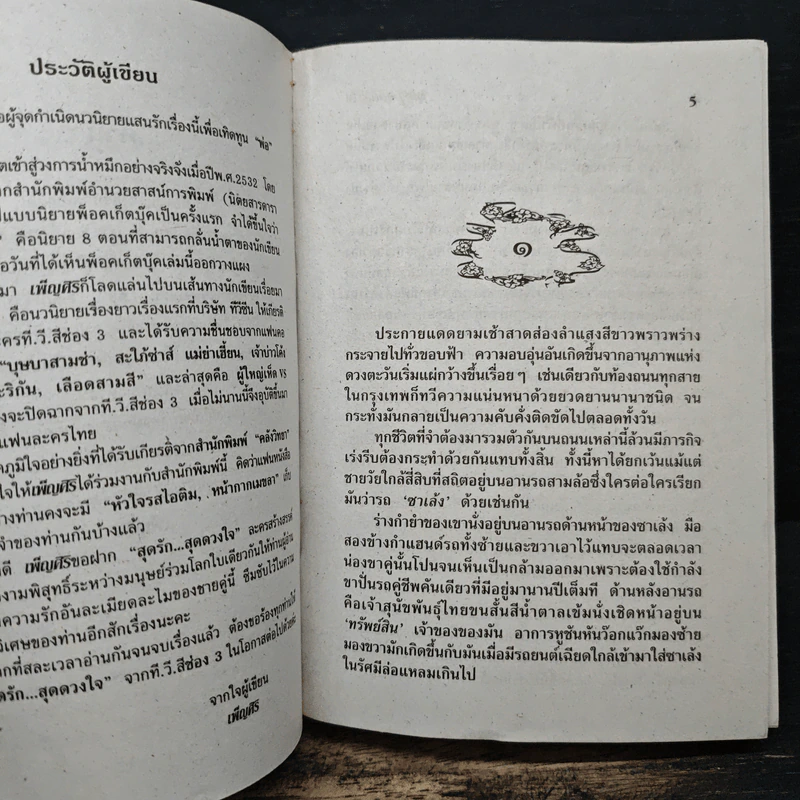 ประวัติผู้เขียน
ผู้จุดกำเนิดนวนิยายแสนรักเรื่องนี้เพื่อเทิดทูน "พ่อ"
เข้าสู่วงการน้ำหมึกอย่างจริงจังเมื่อปีพ.ศ.2532 โดย
กสำนักพิมพ์อำนวยสาสน์การพิมพ์ (นิตยสารดารา
ปแบบนิยายพ็อคเก็ตบุ๊คเป็นครั้งแรก จำได้ขึ้นใจว่า
" คือนิยาย 8 ตอนที่สามารถกลั่นน้ำตาของนักเขียน
อวันที่ได้เห็นพ็อคเก็ตบุ๊คเล่มนี้ออกวางแผง
มา เพ็ญศิริก็โลดแล่นไปบนเส้นทางนักเขียนเรื่อยมา
คือนวนิยายเรื่องยาวเรื่องแรกที่บริษัท ทีวีซีน ให้เกียรติ
ครที.วี.สีช่อง 3 และได้รับความชื่นชอบจากแฟนคอ
"บุษบาสามช่า, สะใภ้ซ่าส์ แม่ย่าเฮี้ยน, เจ้าบ่าวโค้ง
ะริกัน, เลือดสามสี" และล่าสุดคือ ผู้ใหญ่เห็ด VS
งจะปิดฉากจากที.วี.สีช่อง 3 เมื่อไม่นานนี้จึงอุบัติขึ้นมา
แฟนละครไทย
ภูมิใจอย่างยิ่งที่ได้รับเกียรติจากสำนักพิมพ์ "คลังวิทยา"
ใจให้เพ็ญศิริได้ร่วมงานกับสำนักพิมพ์นี้ คิดว่าแฟนหนังสือ
างท่านคงจะมี "หัวใจรสไอติม, หน้ากากเมขลา" เก็บ
จำของท่านกันบ้างแล้ว
ดี เพ็ญศิริขอฝาก "สุดรัก...สุดดวงใจ" ละครสร้างสรรค์
งามพิสุทธิ์ระหว่างมนุษย์ร่วมโลกใบเดียวกันให้ท่านผู้อ่าน
ความรักอันละเมียดละไมของชายคู่นี้ ซึมซับไว้ในความ
วิเศษของท่านอีกสักเรื่องนะคะ
กที่สละเวลาอ่านกันจนจบเรื่องแล้ว ต้องขอร้องทุกท่านให้
ดรัก...สุดดวงใจ" จากที.วี.สีช่อง 3 ในโอกาสต่อไปด้วยค่ะ
จากใจผู้เขียน
เพ็ญศิริ
5
๑
ประกายแดดยามเช้าสาดส่องลำแสงสีขาวพราวพร่าง
กระจายไปทั่วขอบฟ้า ความอบอุ่นอันเกิดขึ้นจากอานุภาพแห่ง
ดวงตะวันเริ่มแผ่กว้างขึ้นเรื่อยๆ เช่นเดียวกับท้องถนนทุกสาย
ในกรุงเทพก็ทวีความแน่นหนาด้วยยวดยานนานาชนิด จน
กระทั่งมันกลายเป็นความคับคั่งติดขัดไปตลอดทั้งวัน
ทุกชีวิตที่จำต้องมารวมตัวกันบนถนนเหล่านี้ล้วนมีภารกิจ
เร่งรีบต้องกระทำด้วยกันแทบทั้งสิ้น ทั้งนี้หาได้ยกเว้นแม้แต่
ชายวัยใกล้สี่สิบที่สถิตอยู่บนอานรถสามล้อซึ่งใครต่อใครเรียก
มันว่ารถ 'ซาเล้ง' ด้วยเช่นกัน
ร่างกำยำของเขานั่งอยู่บนอานรถด้านหน้าของซาเล้ง มือ
สองข้างกำแฮนด์รถทั้งซ้ายและขวาเอาไว้แทบจะตลอดเวลา
น่องขาคู่นั้นโปนจนเห็นเป็นกล้ามออกมาเพราะต้องใช้กำลัง
ขาปั่นรถคู่ชีพคันเดียวที่มีอยู่มานานปีเต็มที ด้านหลังอานรถ
คือเจ้าสุนัขพันธุ์ไทยขนสั้นสีน้ำตาลเข้มนั่งเชิดหน้าอยู่บน
'ทรัพย์สิน' เจ้าของของมัน อาการหูชันหันว๊อกแว๊กมองซ้าย
มองขวามักเกิดขึ้นกับมันเมื่อมีรถยนต์เฉียดใกล้เข้ามาใส่ซาเล้ง
ในรัศมีล่อแหลมเกินไป